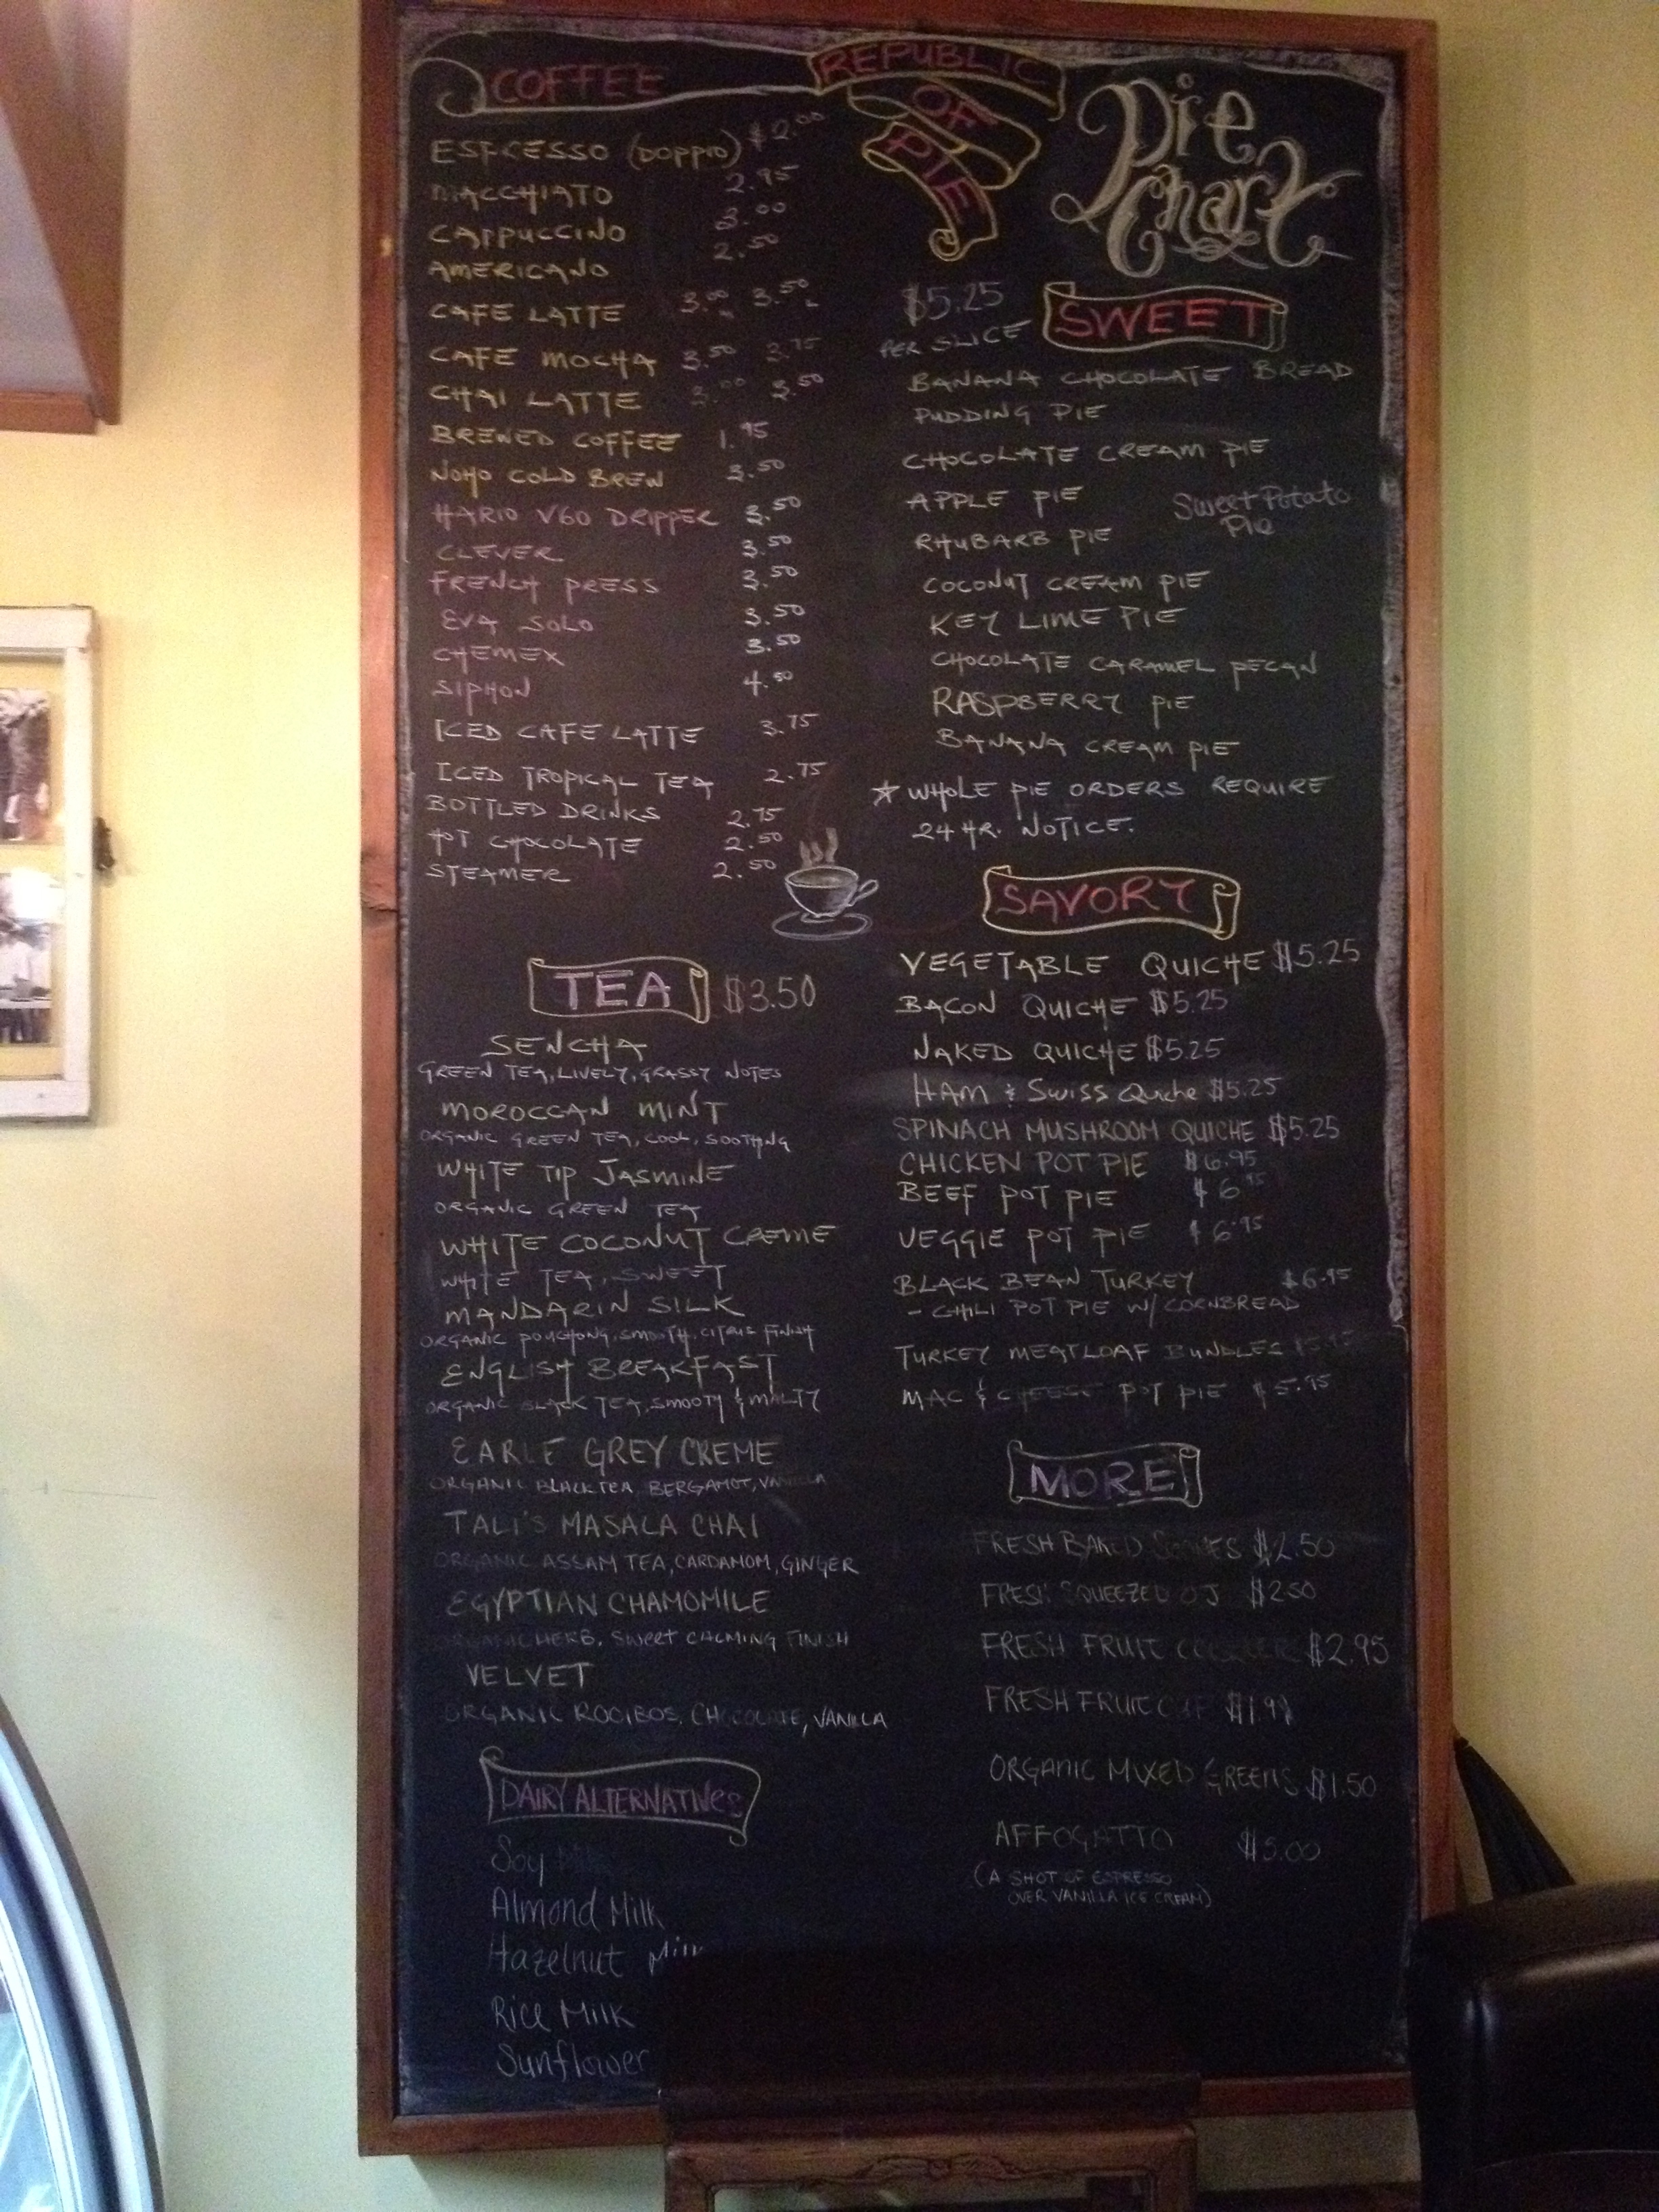 COFFEE
ESPRESSO (DOPPIO) $2.00
MACCHIATO 2.95
CAPPUCCINO 3.00
AMERICANO 2.50
CAFE LATTE 3.00 3.50 L
CAFE MOCHA 3.50 3.75
CHAI LATTE 3.00 3.50
BREWED COFFEE 1.95
NOHO COLD BREW 3.50
HARIO V60 DRIPPER 3.50
CLEVER 3.50
FRENCH PRESS 3.50
EVA SOLO 3.50
CHEMEX 3.50
SIPHON 4.50
ICED CAFE LATTE 3.75
ICED TROPICAL TEA 2.75
BOTTLED DRINKS 2.75
HOT CHOCOLATE 2.50
STEAMER 2.50
TEA $3.50
SENCHA
GREEN TEA, LIVELY, GRASSY NOTES
MOROCCAN MINT
ORGANIC GREEN TEA, COOL, SOOTHING
WHITE TIP JASMINE
ORGANIC GREEN TEA
WHITE COCONUT CREME
WHITE TEA, SWEET
MANDARIN SILK
ORGANIC POUCHONG, SMOOTH, CITRUS FINISH
ENGLISH BREAKFAST
ORGANIC BLACK TEA, SMOOTY & MALTY
EARLE GREY CREME
ORGANIC BLACK TEA BERGAMOT, VANILLA
TALI'S MASALA CHAI
ORGANIC ASSAM TEA, CARDAMOM, GINGER
EGYPTIAN CHAMOMILE
ORGANIC HERB, SWEET CALMING FINISH
VELVET
ORGANIC ROOIBOS, CHOCOLATE, VANILLA
DAIRY ALTERNATIVES
Soy
Almond Milk
Hazelnut Milk
Rice Milk
Sunflower
REPUBLIC
OF
PIE
Pie
Chart
$5.25
PER SLICE
SWEET
BANANA CHOCOLATE BREAD
PUDDING PIE
CHOCOLATE CREAM PIE
APPLE PIE
Sweet Potato
Pie
RHUBARB PIE
COCONUT CREAM PIE
KEY LIME PIE
CHOCOLATE CARAMEL PECAN
RASPBERRY PIE
BANANA CREAM PIE
☆ WHOLE PIE ORDERS REQUIRE
24 HR. NOTICE.
SAVORY
VEGETABLE QUICHE $5.25
BACON QUICHE $5.25
NAKED QUICHE $5.25
HAM & SWISS Quche $5.25
SPINACH MUSHROOM QUICHE $5.25
CHICKEN POT PIE $6.95
BEEF POT PIE $6.95
VEGGIE POT PIE $6.95
BLACK BEAN TURKEY $6.95
- CHILI POT PIE W/ CORNBREAD
TURKEY MEATLOAF BUNDLES
MAC & CHEESE POT PIE $5.95
MORE
FRESH BAKED SCONES $2.50
FRESH SQUEEZED OJ $2.50
FRESH FRUIT $2.95
FRESH FRUIT CUP
ORGANIC MIXED GREENS $1.50
AFFOGATTO
(A SHOT OF ESPRESSO
OVER VANILLA ICE CREAM)